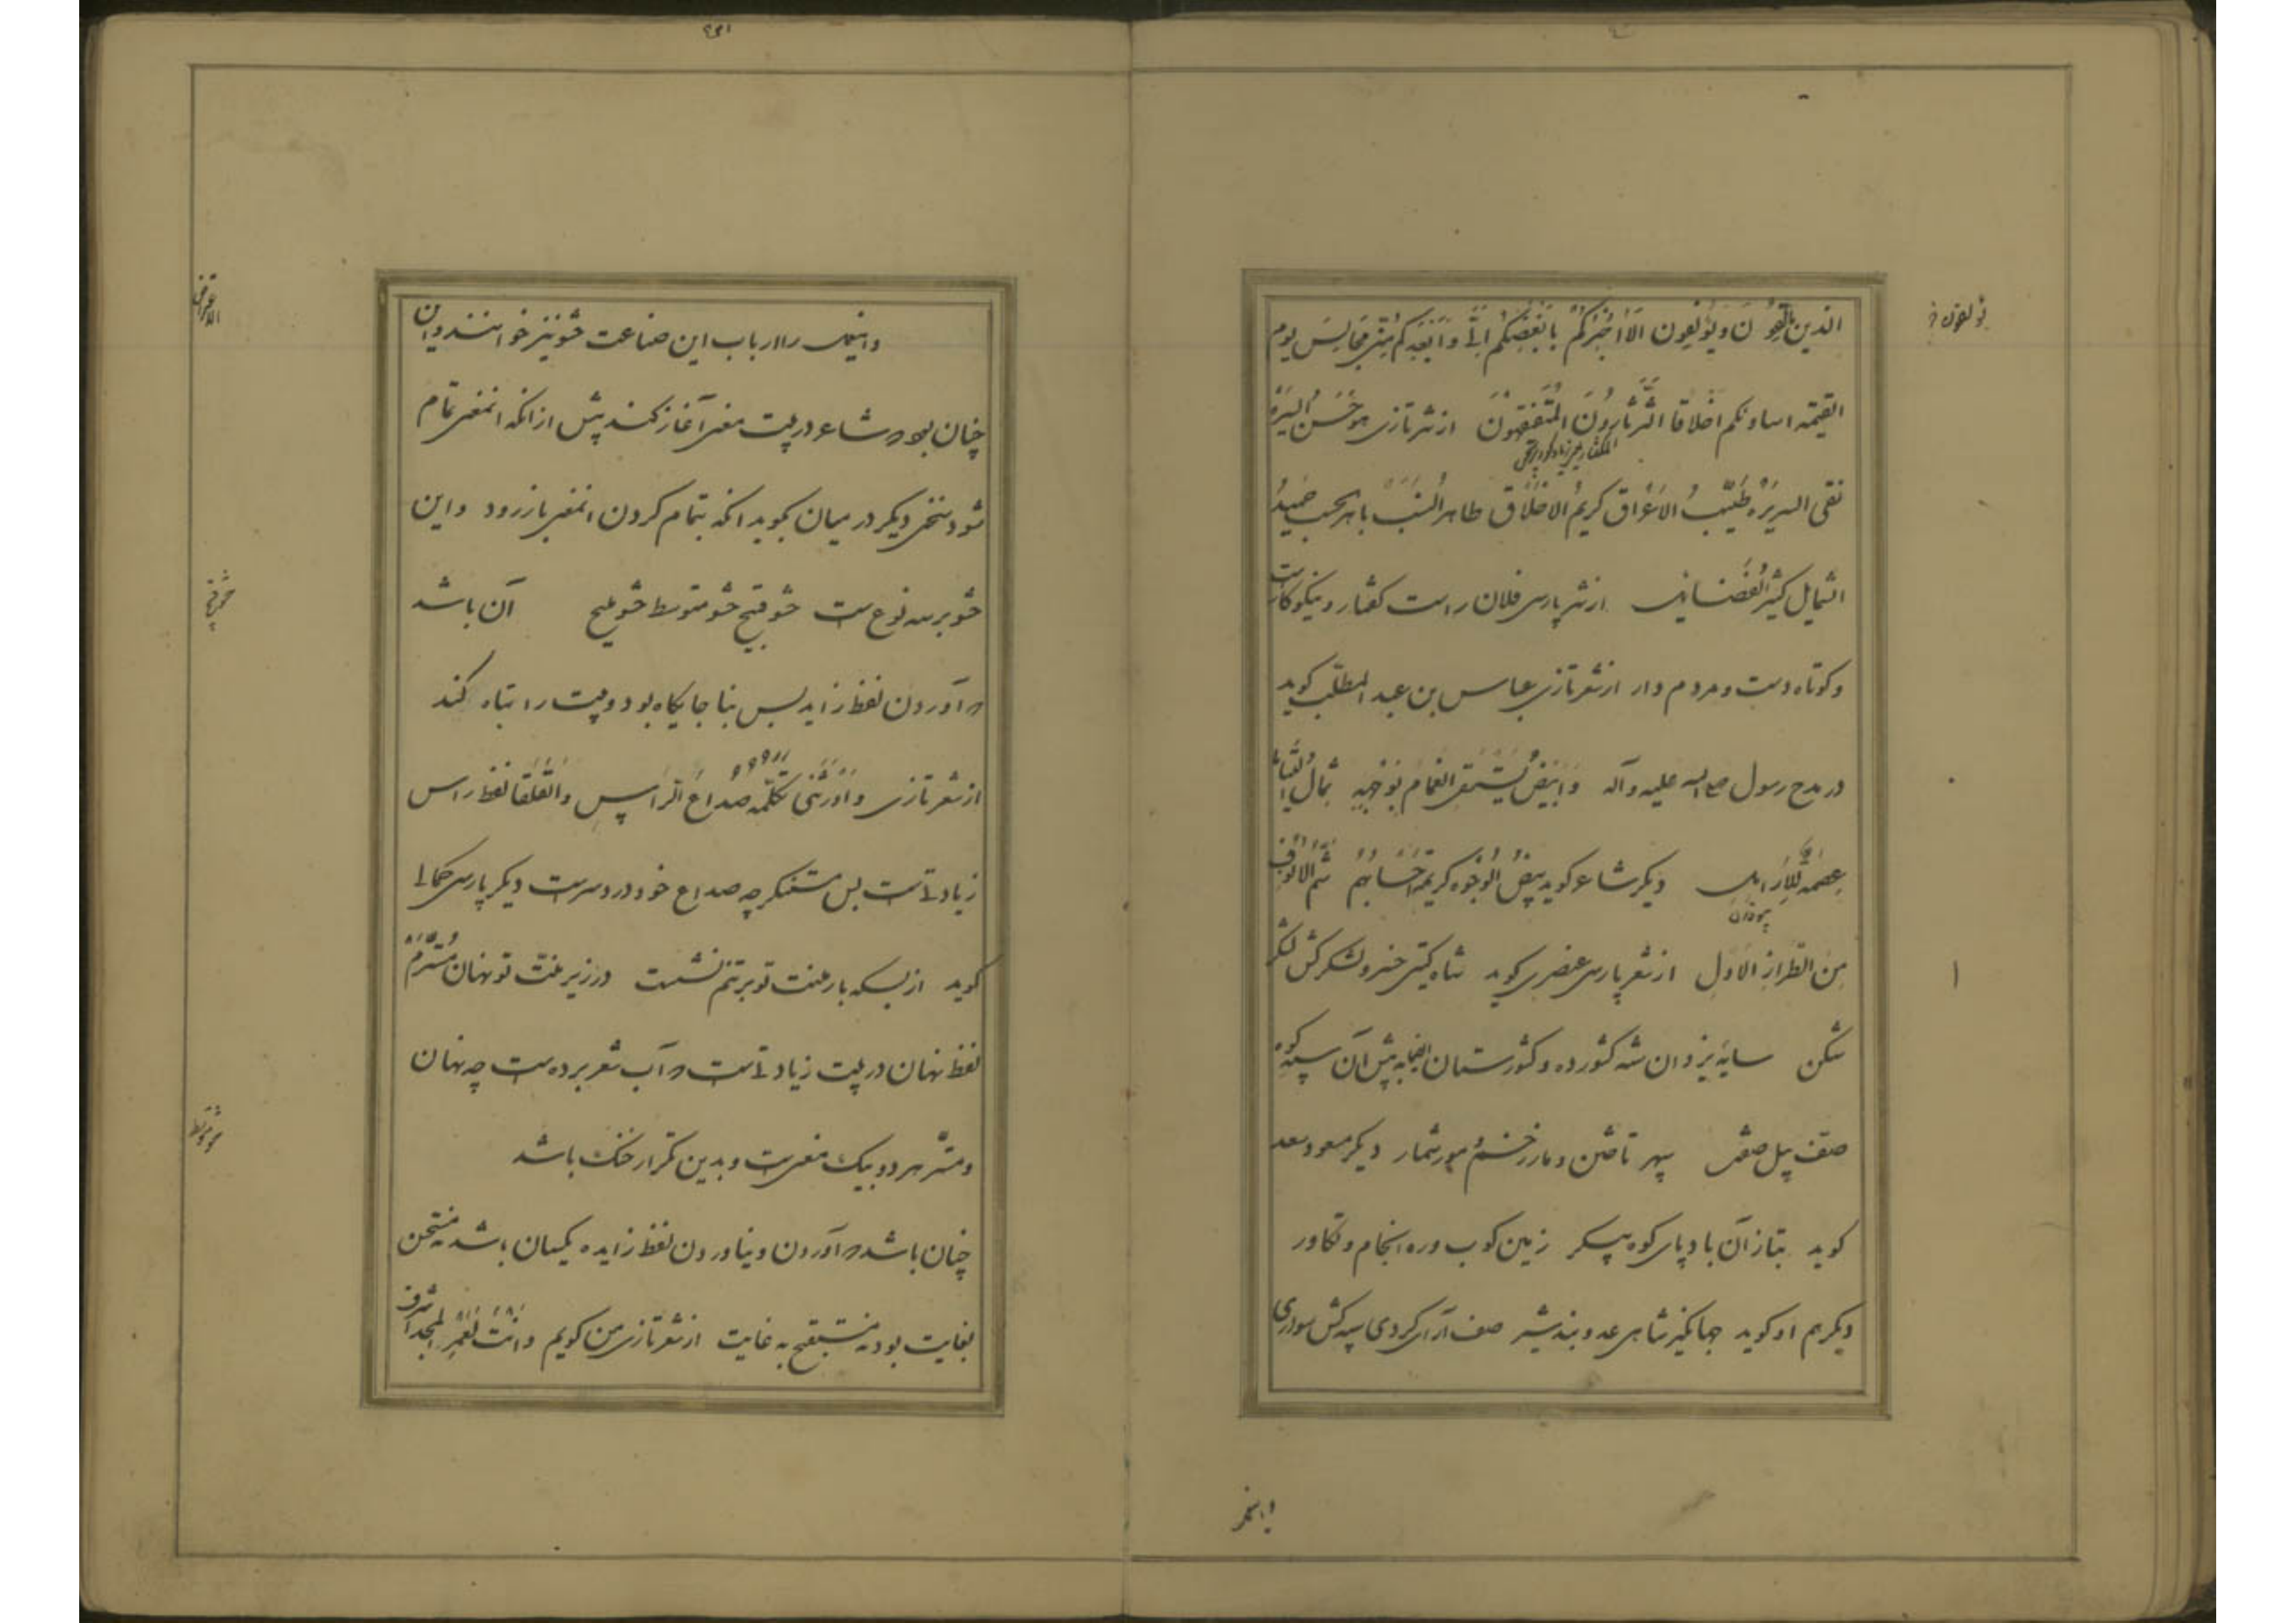 الذین یألفون و یؤلفون الا اخبرکم بابغضکم الی و ابعدکم منی مجالس یوم
القیمة اساونکم اخلاقا الثرثارون المتفیهقون از نثر تازی هو حسن السیرة
نقی السریره طیب الاعراق کریم الاخلاق طاهر النسب باهر الحسب حمید
الشمایل کثیر الفضایل از نثر پارسی فلان راست گفتار و نیکو کارست
و کوتاه دست و مردم دار از شعر تازی عباس بن عبد المطلب گوید
در مدح رسول صلی الله علیه و آله و ابیض یستسقی الغمام بوجهه ثمال الیتامی
عصمة للارامل دیگر شاعر گوید بیض الوجوه کریمة احسابهم شم الانوف
من الطراز الاول از شعر پارسی عنصری گوید شاه گیتی خسرو لشکر کش لشکر
شکن سایهٔ یزدان شه کشور ده و کشورستان پیش آن سپه کوه
صف پیل صفش سپهر تاختن و مار زخم مور شمار دیگر مسعود سعد
گوید بتاز آن باد پای کوه پیکر زمین کوب و ره انجام و تکاور
دیگر هم او گوید جهانگیر شاهی عدو بند شیر صف آرای گردی سپه کش سواری
و این عمل را ارباب این صناعت حشو نیز خوانند و این
چنان بود که شاعر در بیت معنی آغاز کند پیش از آنکه آن معنی تمام
شود سخنی دیگر در میان بگوید آنگه بتمام کردن آن معنی باز رود و این
حشو بر سه نوع ست حشو قبیح حشو متوسط حشو ملیح آن باشد
که آوردن لفظ زاید بس بنا جایگاه بود و بیت را تباه کند
از شعر تازی صداع الراس و القلقا لفظ راس
زیادتی است بس مستنکر چه صداع خود درد سرست دیگر پارسی کمالی
گوید از بسکه بار منت تو بر تنم نشست در زیر منت تو نهان و مسترم
لفظ نهان در بیت زیادتی است که آب شعر برده ست چه نهان
و مستر هر دو بیک معنی ست و بدین تکرار خنک باشد
چنان باشد که آوردن و نیاوردن لفظ زایده یکسان باشد نه مستحسن
بغایت بود نه مستقبح به غایت از شعر تازی من گویم و انت لعمر المجد اشرف